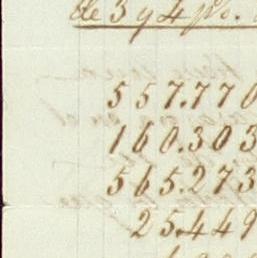 de 3 y 4 ps.
557.770
160.303
565.273
25.449